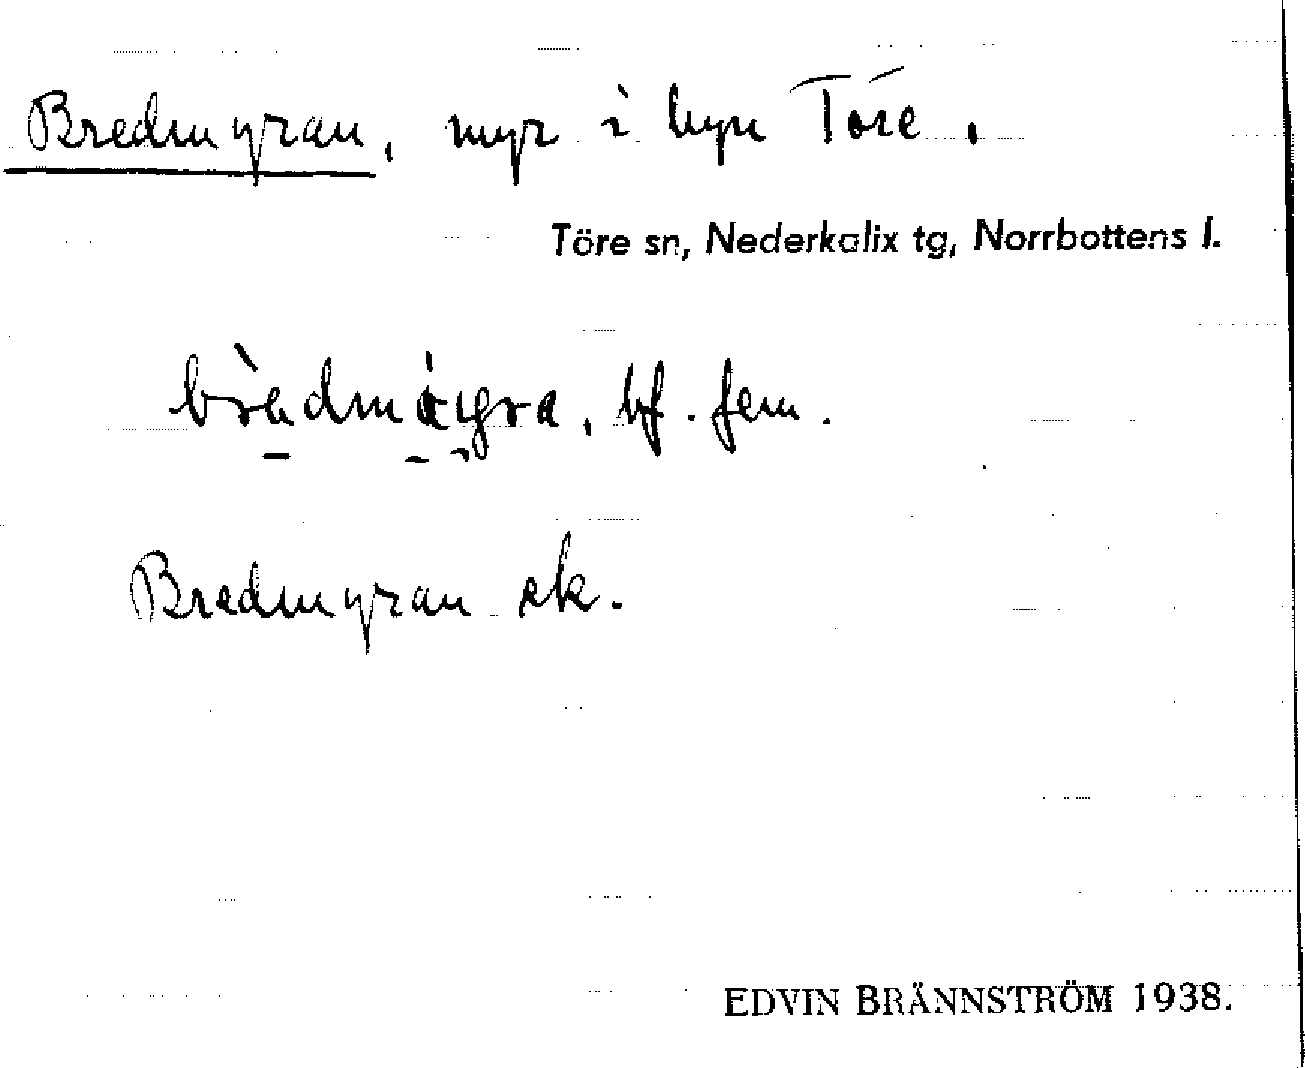 Bredmyran, myr i byn Töre.
Töre sn, Nederkalix tg, Norrbottens l.
bf. fem.
Bredmyran ek.
EDVIN BRÄNNSTRÖM 1938.